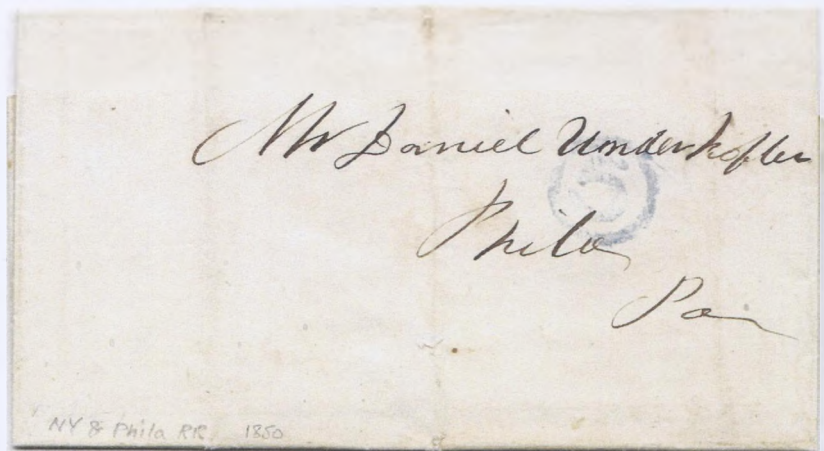 Mr Daniel Underkofler
Phila
Pa
NY & Phila RR 1850